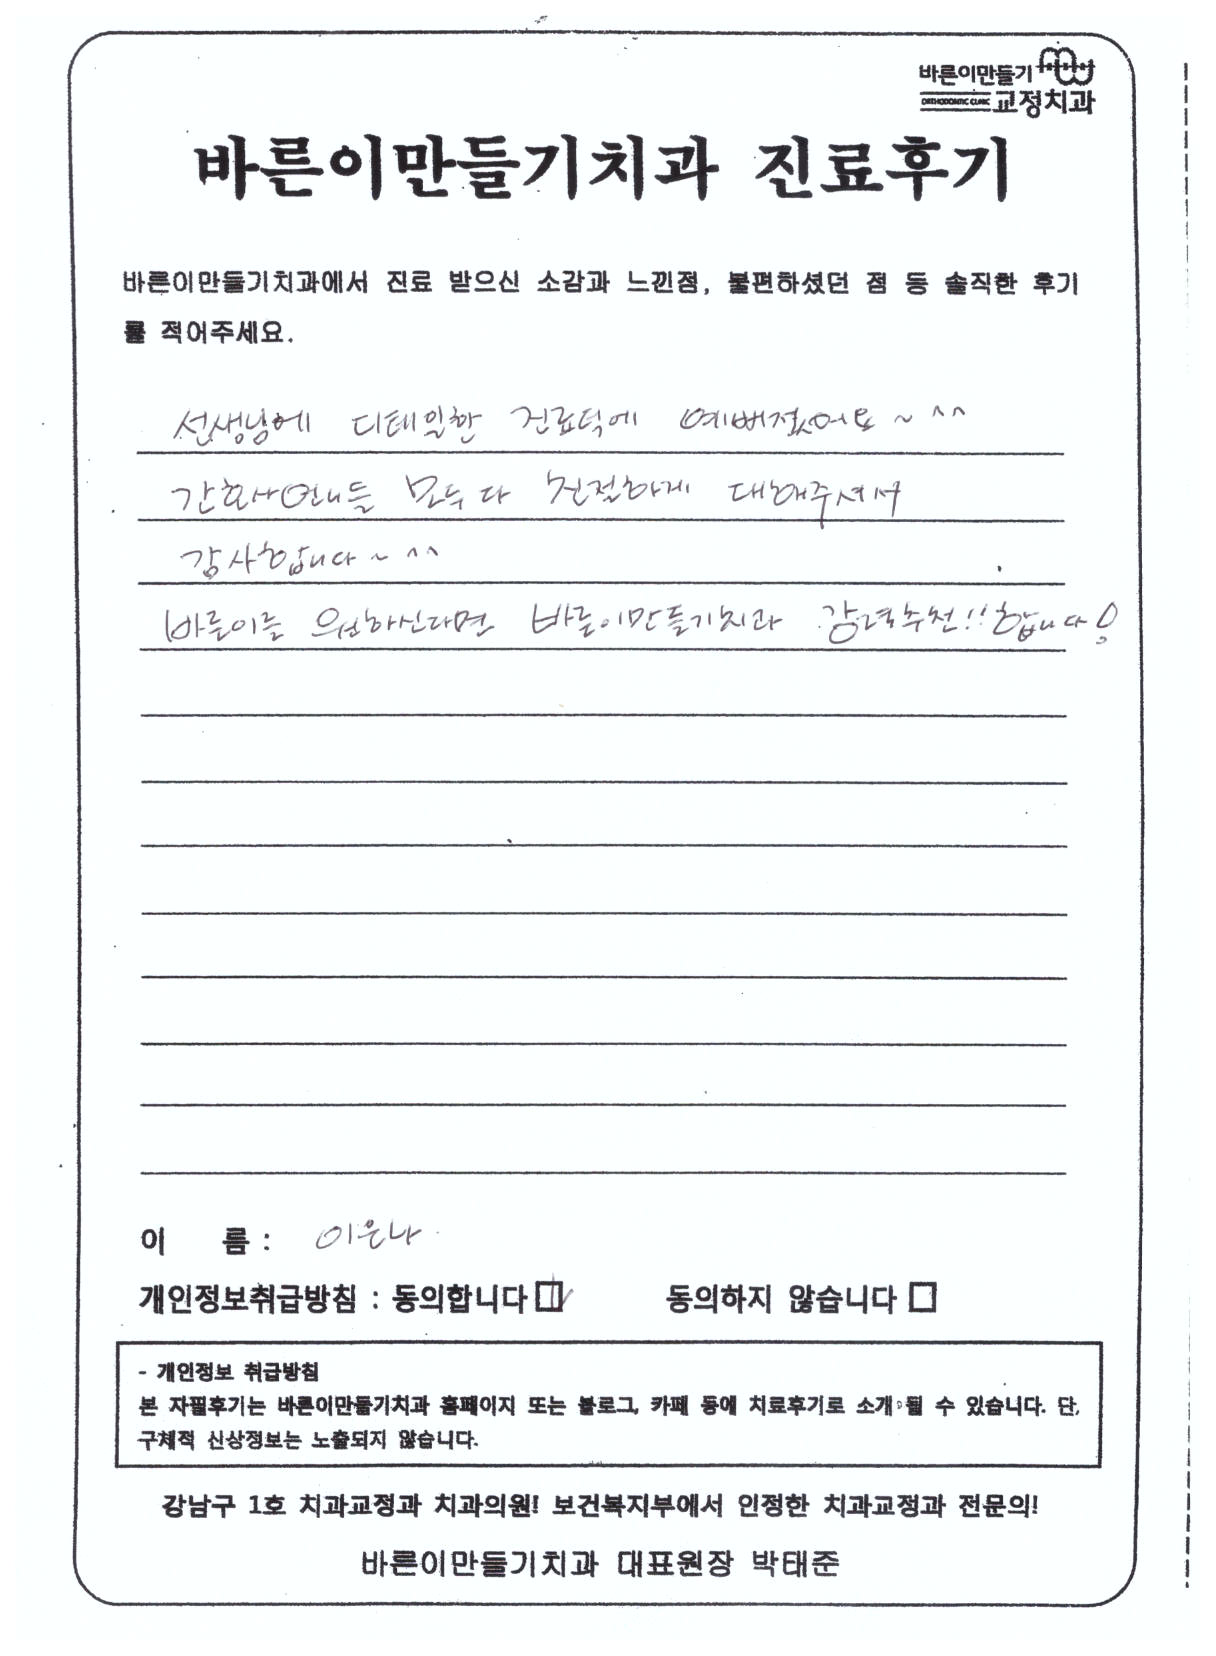 바른이만들기
ORTHODONTIC CLINIC 교정치과
바른이만들기치과 진료후기
바른이만들기치과에서 진료 받으신 소감과 느낀점, 불편하셨던 점 등 솔직한 후기
를 적어주세요.
선생님에 디테일한 진료덕에 예뻐졌어요~ ^^
간호사언니들 모두 다 친절하게 대해주셔서
감사합니다~ ^^
바른이를 원하신다면 바른이만들기치과 강력추천!! 합니다!
이 름 : 이은나
개인정보취급방침 : 동의합니다 동의하지 않습니다
- 개인정보 취급방침
본 자필후기는 바른이만들기치과 홈페이지 또는 블로그, 카페 등에 치료후기로 소개 될 수 있습니다. 단,
구체적 신상정보는 노출되지 않습니다.
강남구 1호 치과교정과 치과의원! 보건복지부에서 인정한 치과교정과 전문의!
바른이만들기치과 대표원장 박태준